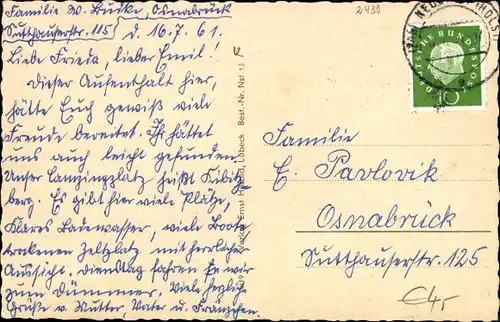 Familie W. Budke, Osnabrück
Sutthauserstr. 115, d. 16.7.61.
Liebe Frieda, lieber Emil!
Dieser Aufenthalt hier,
hätte Euch gewiß viele
Freude bereitet. Ihr hättet
uns auch leicht gefunden.
Unser Campingplatz heißt Kibitz
berg. Es gibt hier viele Plätze,
klares Badewasser, viele Boote
trockenen Zeltplatz mit herrlicher
Aussicht. Dienstag fahren wir
zum Dümmer. Viele herzliche
Grüße v. Mutter, Vater u. Fränzchen.
2430
DEUTSCHE BUNDESPOST
10
Verlag Ernst Lübeck Best.-Nr. Nst 13
Familie
E. Pavlovik
Osnabrück
Sutthauserstr. 125
€4,-